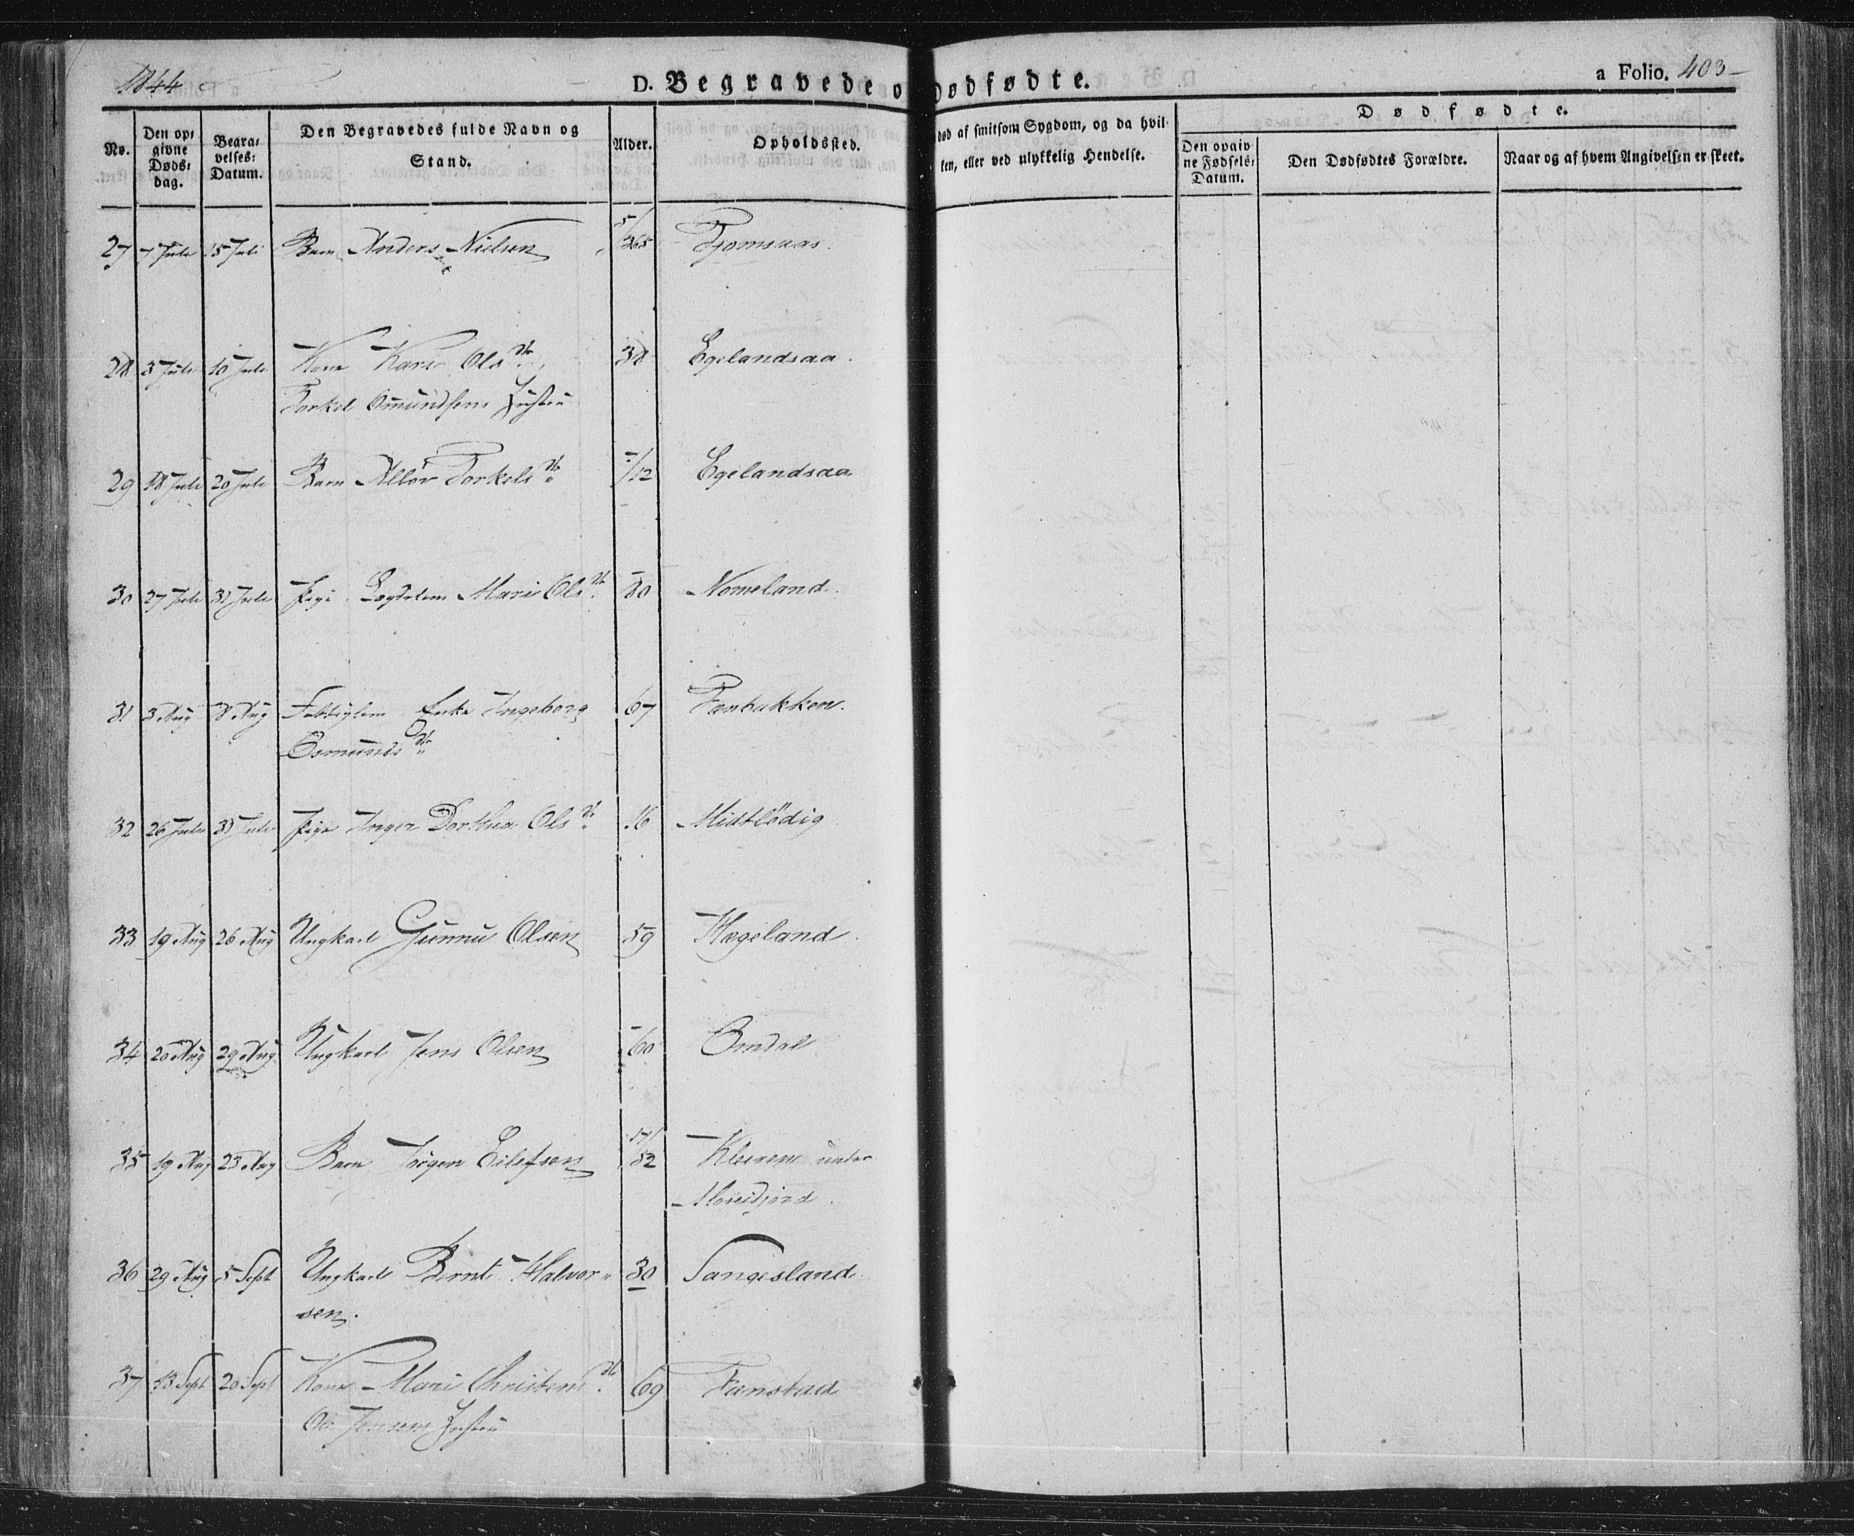 1844
D. Begravede o Dødfødte.
a Folio. 403
No.
Den opgivne Dødsdag.
Begravelses-Datum.
Den Begravedes fulde Navn og Stand.
Alder.
Opholdssted.
død af smitsom Sygdom, og da hvilken, eller ved ulykkelig Hendelse.
Dødfødte.
Den opgivne Fødsels-Datum.
Den Dødfødtes Forældre.
Naar og af hvem Angivelsen er skeet.
27 7 Juli 15 Juli Barn Anders Nielsen 5/365 Tjomsaas.
28 3 Juli 10 Juli Kone Kari Olsdtr 38 Egelandsaa.
Torkel Omundsens Hustru
29 18 Juli 20 Juli Barn Torkelsdtr /12 Egelandsaa
30 27 Juli 31 Juli Pige Marie Olsdtr 80 Nomeland.
31 3 Aug 8 Aug Enke Ingeborg 67
Osmundsdtr
32 26 Juli 31 Juli Pige Inger Dorthea Olsdtr 16 Midtlødig
33 19 Aug 26 Aug Ungkarl Gunnu Olsen 59 Hægeland.
34 20 Aug 29 Aug Ungkarl Jens Olsen 60 Omdal
35 19 Aug 23 Aug Barn Jørgen Eilefsen 17/52 Kleven under
36 29 Aug 5 Sept Ungkarl Bernt Halvor- 30 Sangesland.
sen.
37 13 Sept 20 Sept Kone Mari Christensdtr 69
Ole Jensens Hustru